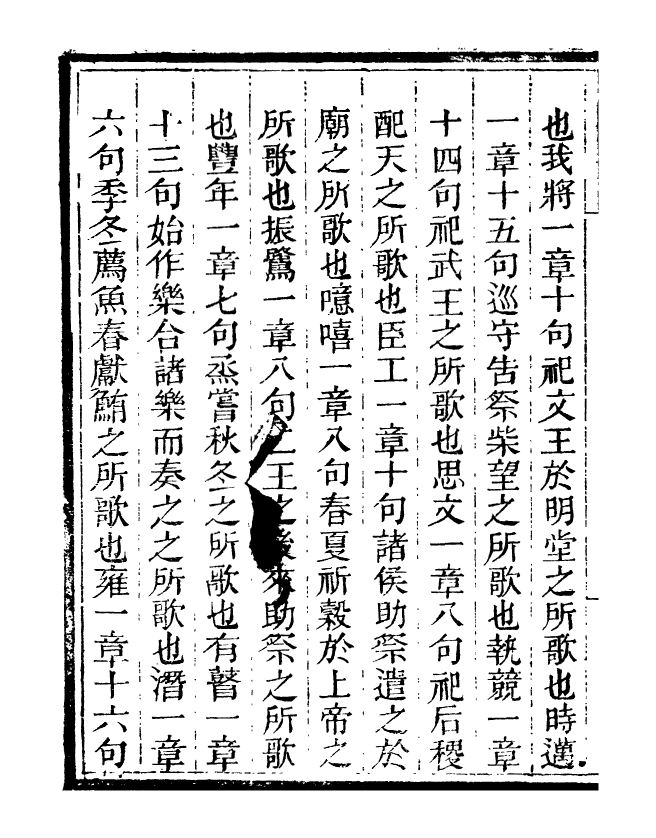 也我將一章十句祀文王於明堂之所歌也時邁
一章十五句巡守告祭柴望之所歌也執競一章
十四句祀武王之所歌也思文一章八句祀后稷
配天之所歌也臣工一章十句諸侯助祭遣之於
廟之所歌也噫嘻一章八句春夏祈穀於上帝之
所歌也振鷺一章八句二王之後來助祭之所歌
也豐年一章七句烝嘗秋冬之所歌也有瞽一章
十三句始作樂合諸樂而奏之之所歌也潛一章
六句季冬薦魚春獻鮪之所歌也雍一章十六句